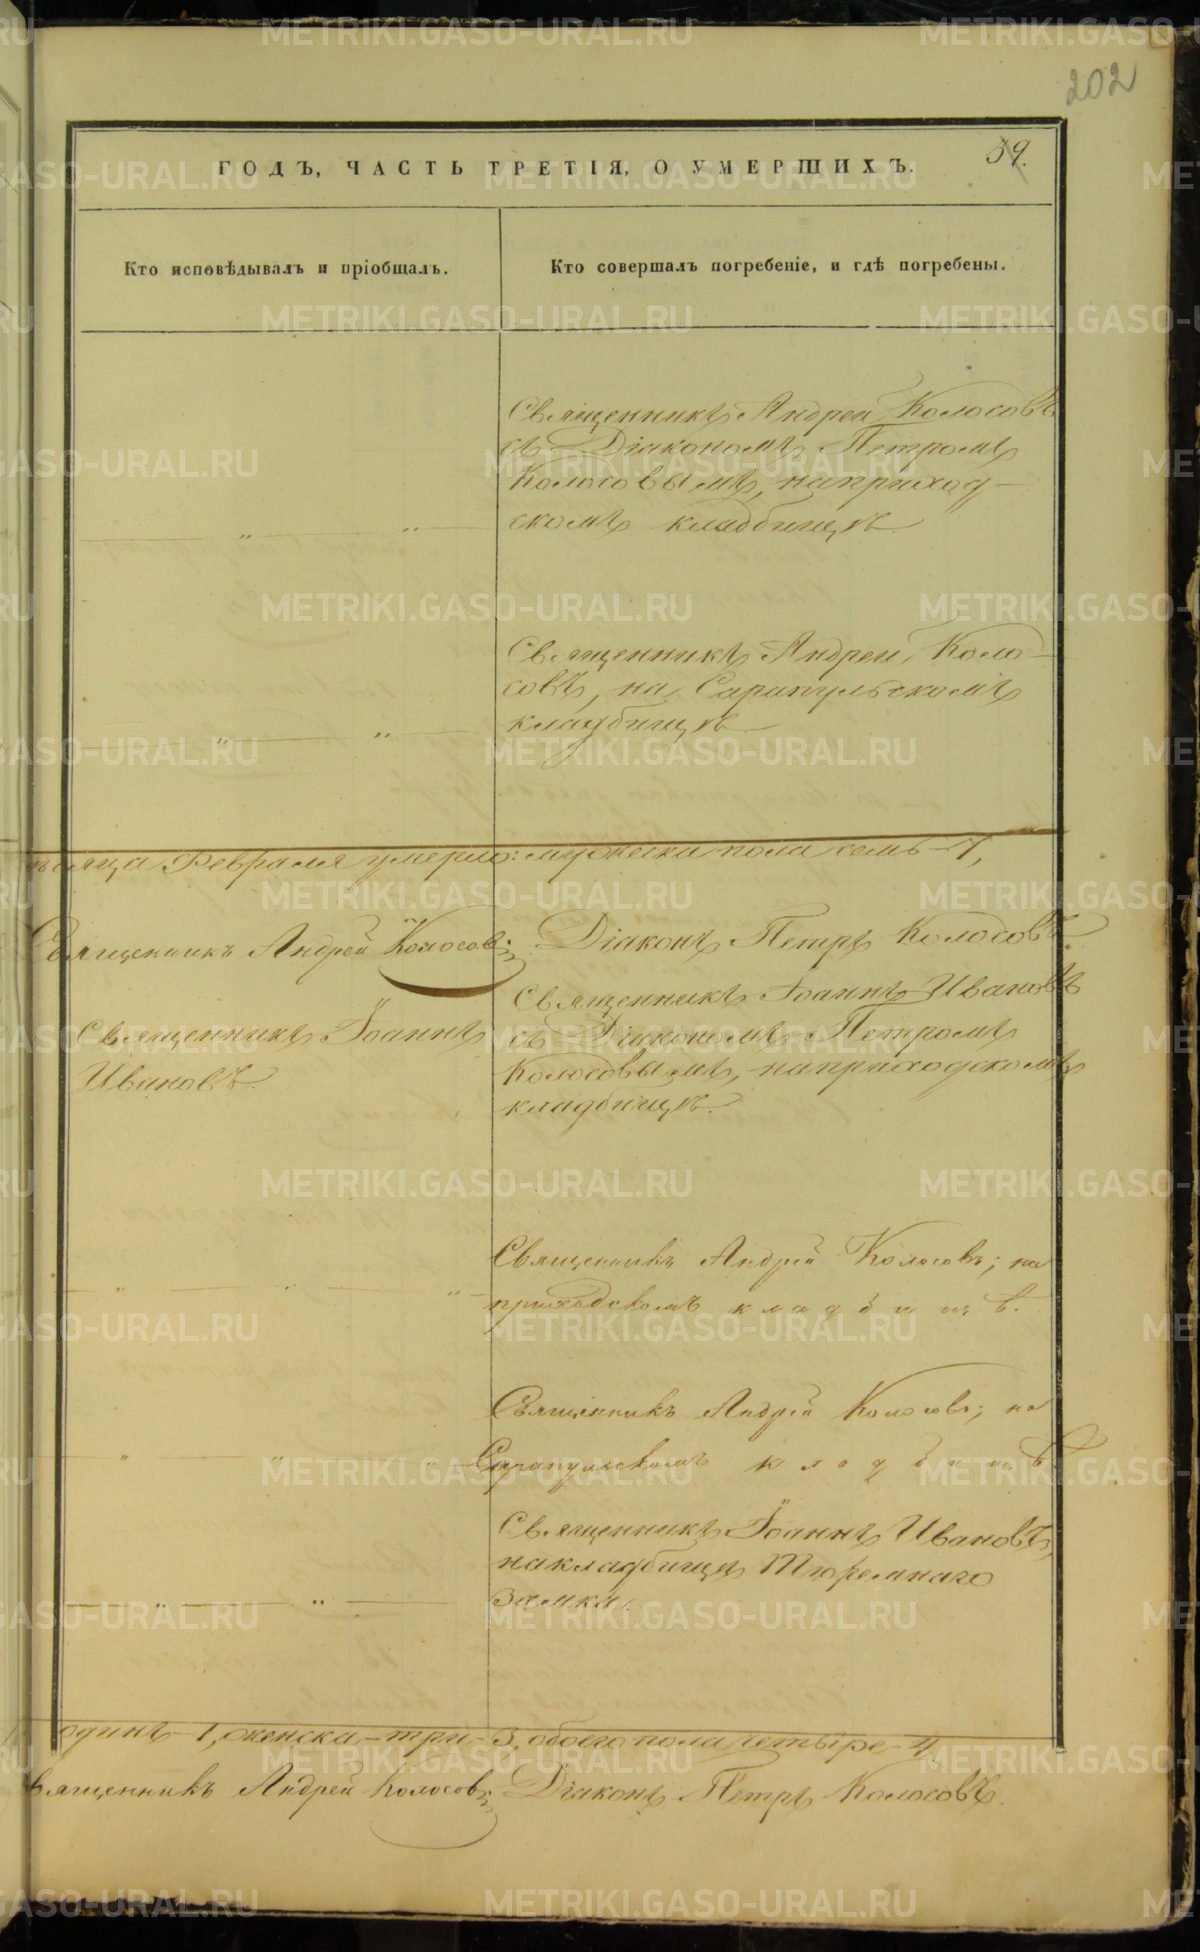 202
ГОДЪ, ЧАСТЬ ТРЕТІЯ, О УМЕРШИХЪ.
59.
Кто исповѣдывалъ и пріобщалъ.
Кто совершалъ погребеніе, и гдѣ погребены.
Священникъ Андрей Колосовъ
съ Діакономъ Петромъ
Колосовымъ, на приход-
скомъ кладбищѣ
Священникъ Андрей Коло-
совъ, на Сарапульскомъ
кладбищѣ
мѣсяца Февраля умерло: мужеска пола семь - 7,
Священникъ Андрей Колосовъ
Діаконъ Петръ Колосовъ.
Священникъ Іоаннъ
Ивановъ
Священникъ Іоаннъ Ивановъ
съ Діакономъ Петромъ
Колосовымъ, на приходскомъ
кладбищѣ.
Священникъ Андрей Колосовъ; на
приходскомъ кладбищѣ.
Священникъ Андрей Колосовъ; на
Сарапульскомъ кладбищѣ
Священникъ Іоаннъ Ивановъ,
на кладбищѣ Тюремнаго
замка.
одинъ - 1, женска - три - 3, обоего пола четыре - 4
Священникъ Андрей Колосовъ
Діаконъ Петръ Колосовъ.
METRIKI.GASO-URAL.RU